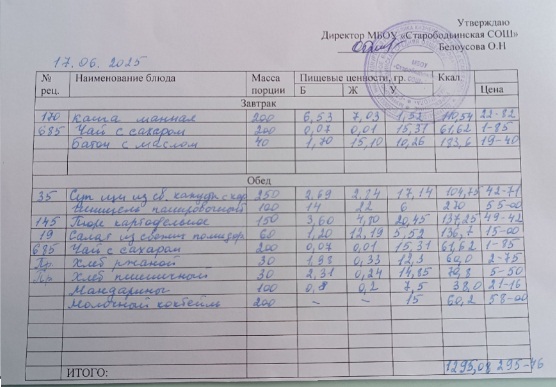 Утверждаю
Директор МБОУ «Стародьинская СОШ»
Белоусова О.Н
17.06.2025
№ рец. Наименование блюда Масса порции Пищевые ценности, гр. Б Ж У Ккал. Цена
Завтрак
170 каша манная 200 6,53 7,03 1,52 110,54 22-82
685 Чай с сахаром 200 0,07 0,01 15,31 61,62 1-85
Батон с маслом 40 1,70 15,10 10,26 183,6 19-40
Обед
35 Суп щи из св. капусты с кар 250 2,69 2,84 17,14 109,75 42-71
Шницель панировочный 100 14 22 6 270 55-00
145 Пюре картофельное 150 3,60 4,80 20,45 137,25 49-42
19 Салат из свежих помидор 60 1,20 12,19 5,52 136,7 15-00
685 Чай с сахаром 200 0,07 0,01 15,31 61,62 1-85
Пр. Хлеб ржаной 30 1,98 0,33 12,3 60,0 2-75
Пр. Хлеб пшеничный 30 2,31 0,24 14,85 70,8 5-50
Мандарины 100 0,8 0,2 7,5 38,0 21-16
Молочный коктейль 200 – – 15 60,2 58-00
ИТОГО: 1295,08 295-46